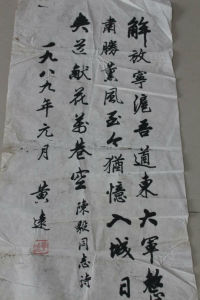 解放寧滬吾道東大軍整
肅勝薰風至今猶憶入城日
夾道獻花萬巷空陳毅同志詩
一九八九年元月 黄遠